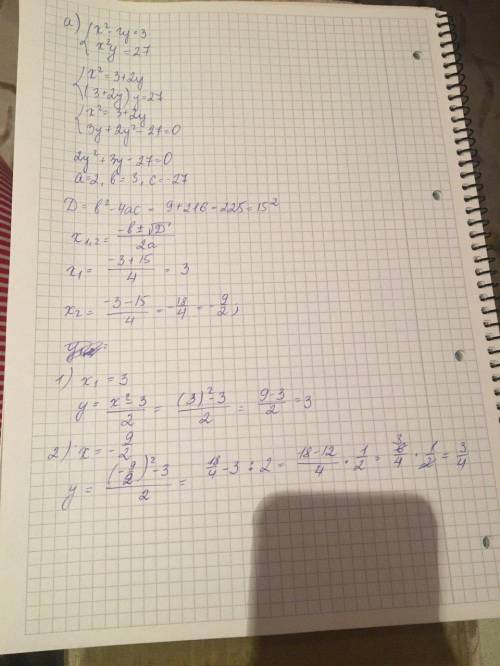 а) { x² - 2y = 3
x²y = 27
{ x² = 3+2y
(3+2y) y = 27
{ x² = 3+2y
3y + 2y² - 27 = 0
2y² + 3y - 27 = 0
a = 2, b = 3, c = -27
D = b² - 4ac = 9 + 216 = 225 = 15²
x₁,₂ = (-b ± √D) / 2a
x₁ = (-3 + 15) / 4 = 3
x₂ = (-3 - 15) / 4 = -18/4 = -9/2;
1) x₁ = 3
y = (x² - 3) / 2 = ((3)² - 3) / 2 = (9 - 3) / 2 = 3
2) x = -9/2
y = ((-9/2)² - 3) / 2 = 18/4 - 3 : 2 = (18 - 12) / 4 · 1/2 = 6/4 3 · 1/2 = 3/4